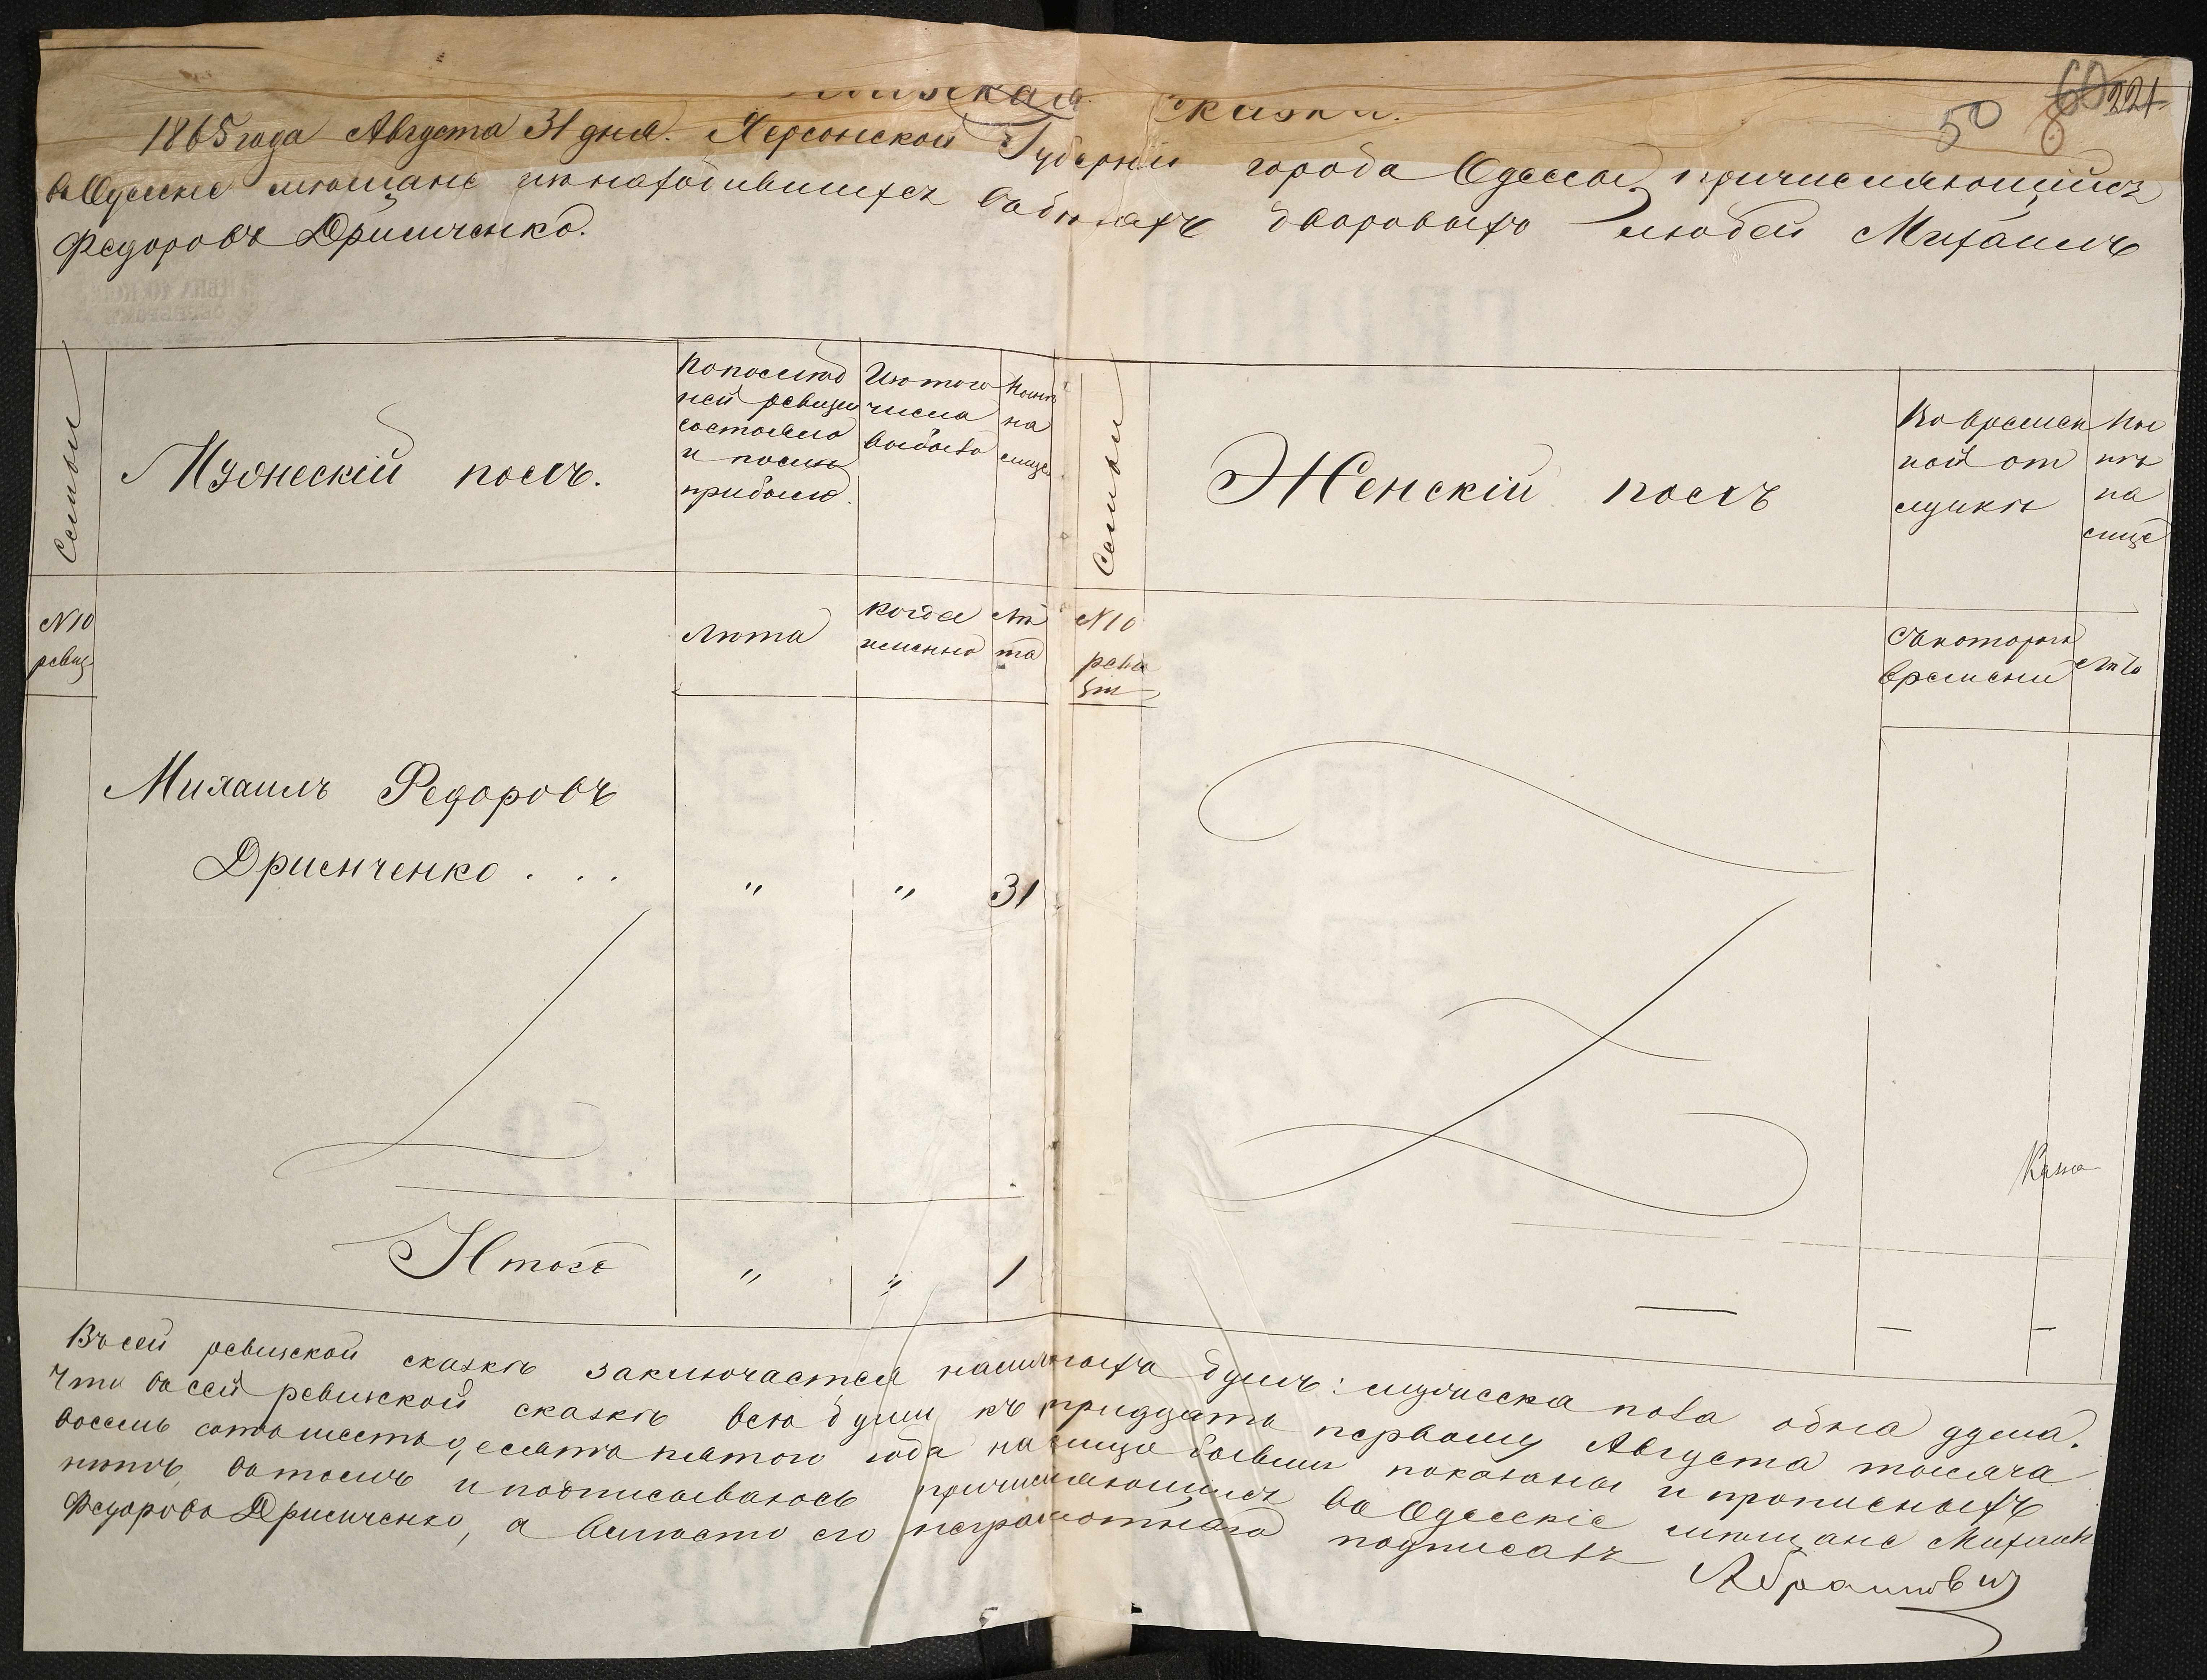 сказка.
50 60 221
1865 года Августа 31 дня. Херсонской Губерніи города Одессы, причисляющійся
въ Одесскіе мѣщане изъ находившихся въ бѣгахъ дворовыхъ людей Михаилъ
Федоровъ Дримченко.
Семьи
Мужескій полъ.
По послѣд
ней ревизіи
состояло
и послѣ
прибыло.
Изъ того
числа
выбыло
Нынѣ
на
лице
Семьи
Женскій полъ
Во времен
ной от
лучкѣ
Ны
нѣ
на
лице
N 10
ревиз
Лѣта
когда
именно
Лѣ
та
N 10
реви
зіи
Съ которого
времени
Лѣта
Михаилъ Федоровъ
Дримченко . . .
" " 31
Итого " " 1
Въ сей ревизской сказкѣ заключается наличныхъ душъ: мужеска пола одна душа.
Что въ сей ревизской сказкѣ всѣ души къ тридцать первому Августа тысяча
восемь сотъ шестьдесятъ пятого года на лице бывши показаны и прописныхъ
нѣтъ, въ томъ и подписываюсь причисляющійся въ Одесскіе мѣщане Михаилъ
Федоровъ Дримченко, а вмѣсто его неграмотнаго подписалъ
Абрамович